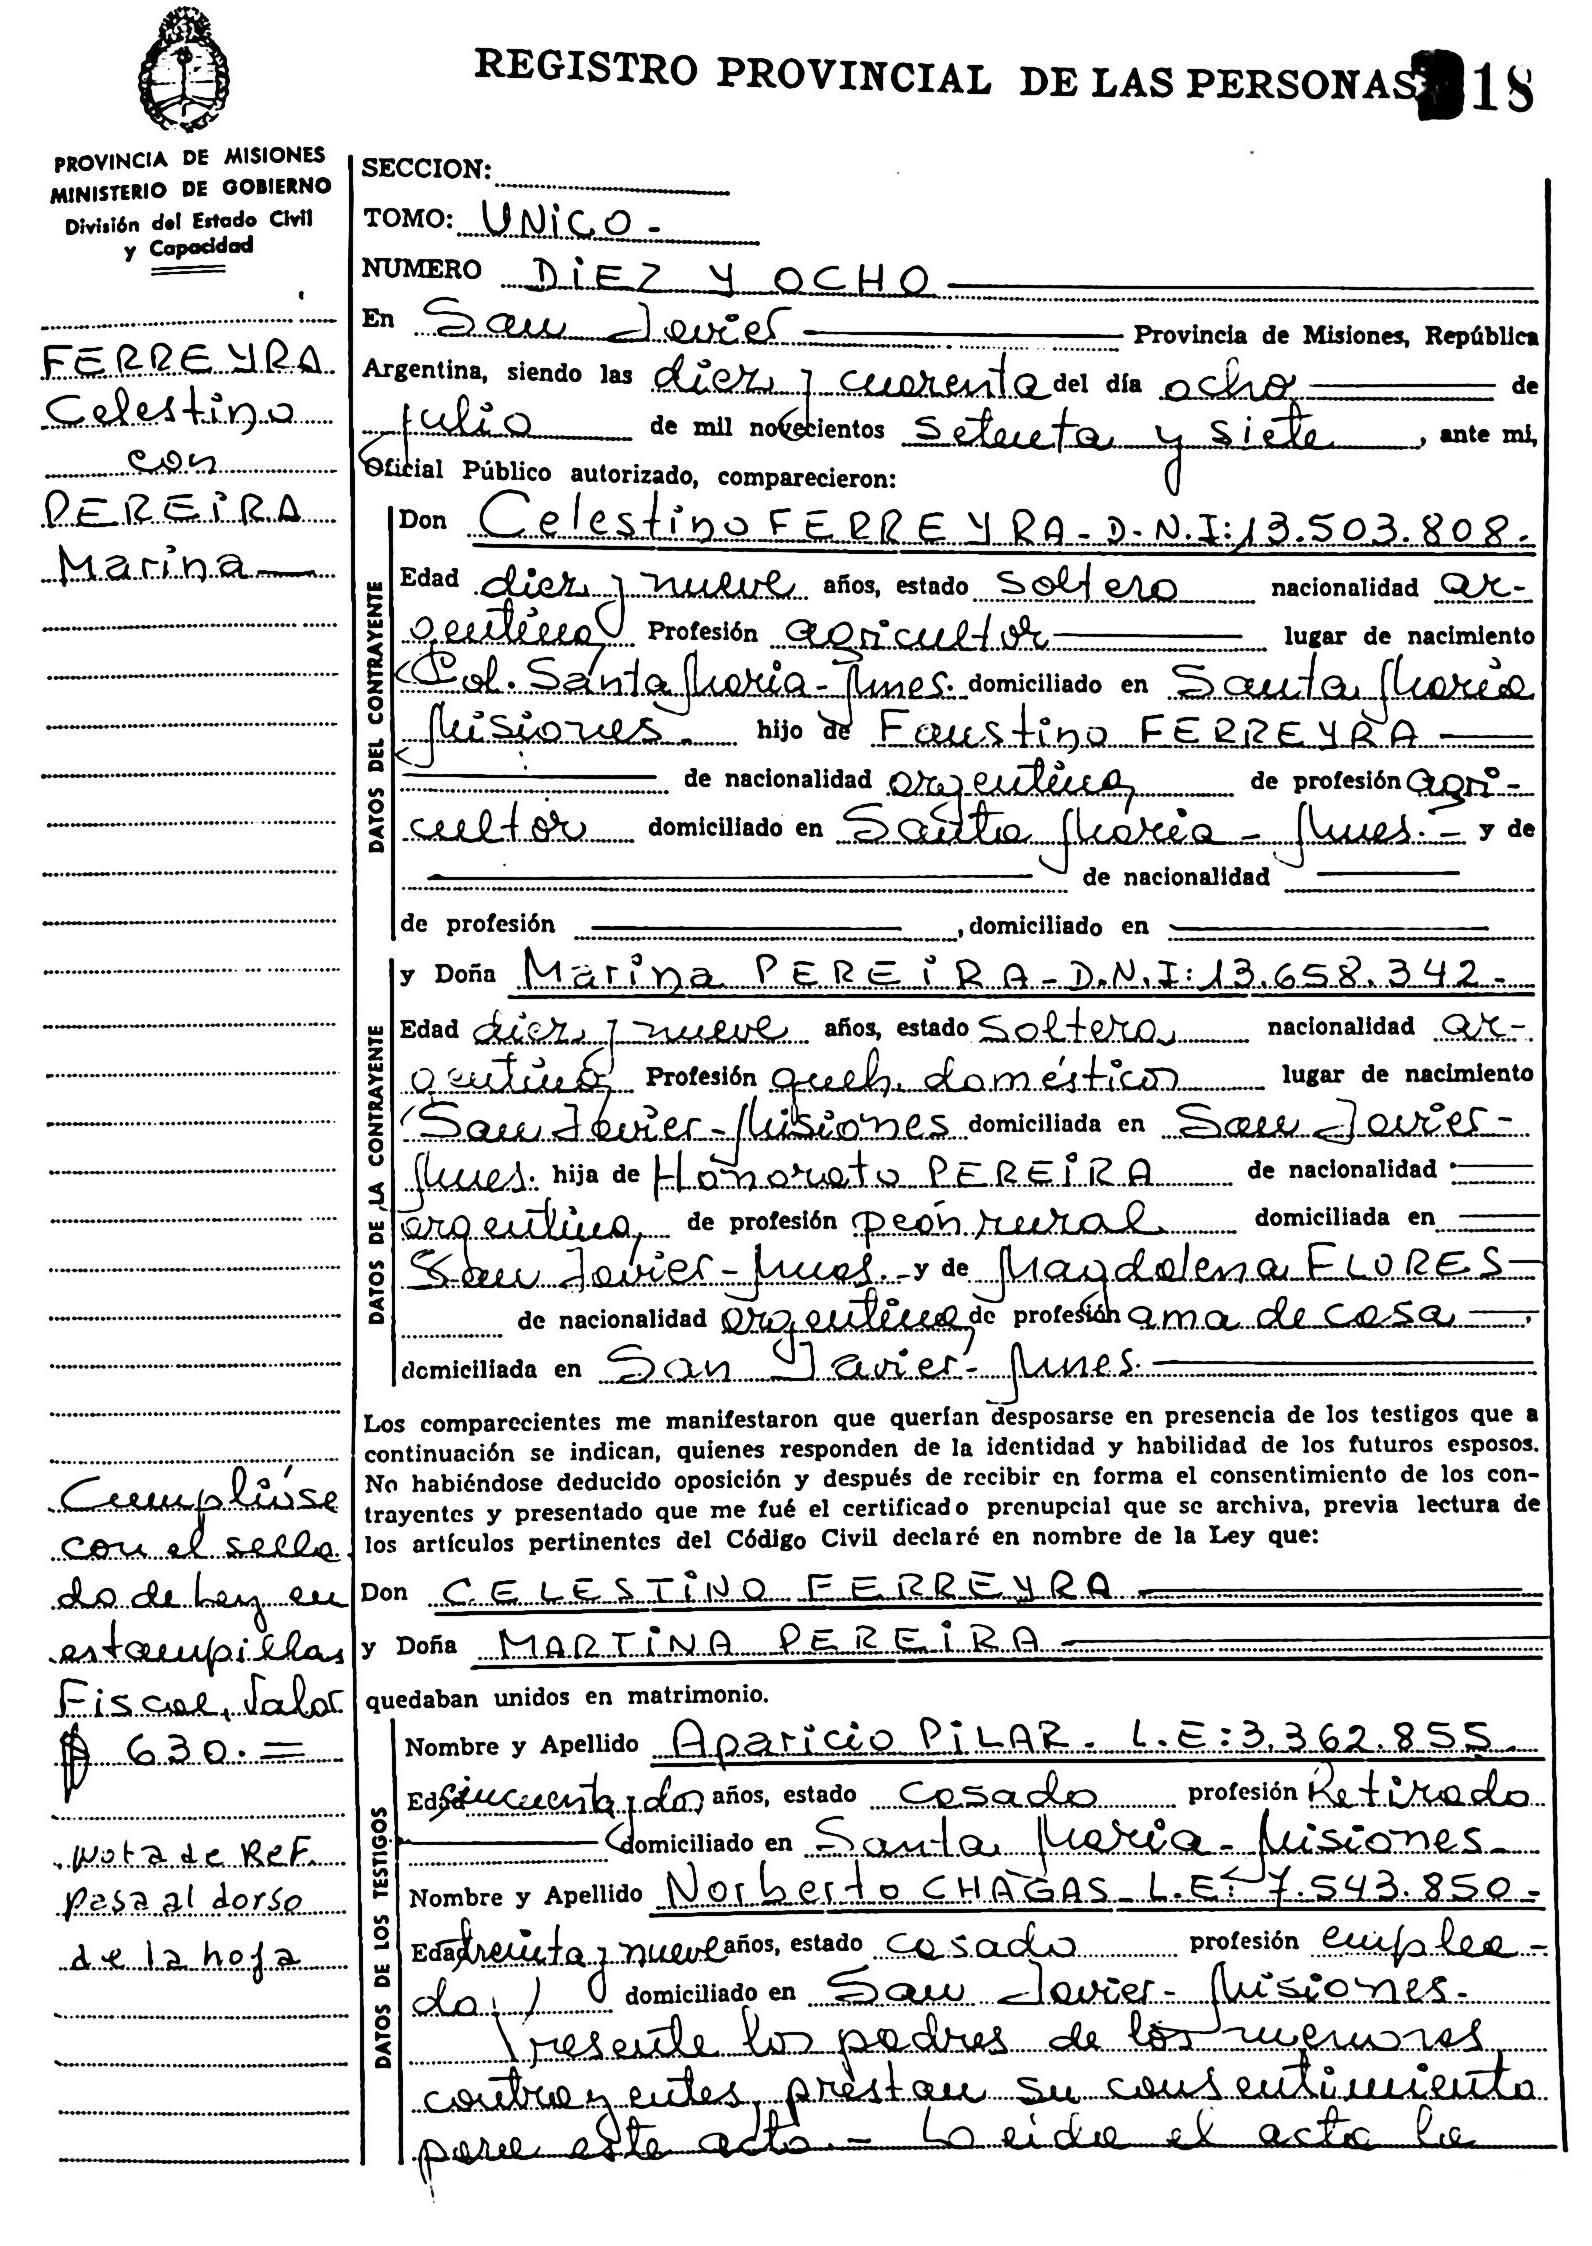 REGISTRO PROVINCIAL DE LAS PERSONAS 18
PROVINCIA DE MISIONES
MINISTERIO DE GOBIERNO
División del Estado Civil
y Capacidad
FERREYRA
Celestino
con
PEREIRA
Marina
Cumplióse
con el sella
do de Ley en
estampillas
Fiscal, Valor
$ 630.=
Nota de Ref.
pasa al dorso
de la hoja
SECCION:
TOMO: UNICO -
NUMERO DIEZ Y OCHO
En San Javier Provincia de Misiones, República
Argentina, siendo las diez y cuarenta del día ocho de
julio de mil novecientos setenta y siete, ante mi,
Oficial Público autorizado, comparecieron:
DATOS DEL CONTRAYENTE
Don Celestino FERREYRA - D.N.I: 13.503.808.-
Edad diez y nueve años, estado soltero nacionalidad ar-
gentina Profesión agricultor lugar de nacimiento
Col. Santa María - Mnes. domiciliado en Santa María
Misiones.- hijo de Faustino FERREYRA
de nacionalidad argentina de profesión agri-
cultor domiciliado en Santa María - Mnes. - y de
de nacionalidad
de profesión , domiciliado en
DATOS DE LA CONTRAYENTE
y Doña Marina PEREIRA - D.N.I: 13.658.342.-
Edad diez y nueve años, estado soltera nacionalidad ar-
gentina Profesión queh. domésticos lugar de nacimiento
San Javier - Misiones domiciliada en San Javier -
Mnes. hija de Honorato PEREIRA de nacionalidad
argentina, de profesión peón rural domiciliada en
San Javier - Mnes. - y de Magdalena FLORES
de nacionalidad argentina de profesión ama de casa
domiciliada en San Javier - Mnes.
Los comparecientes me manifestaron que querían desposarse en presencia de los testigos que a
continuación se indican, quienes responden de la identidad y habilidad de los futuros esposos.
No habiéndose deducido oposición y después de recibir en forma el consentimiento de los con-
trayentes y presentado que me fué el certificado prenupcial que se archiva, previa lectura de
los artículos pertinentes del Código Civil declaré en nombre de la Ley que:
Don CELESTINO FERREYRA
y Doña MARTINA PEREIRA
quedaban unidos en matrimonio.
DATOS DE LOS TESTIGOS
Nombre y Apellido Aparicio PILAR. L.E: 3.362.855.
Edad cincuenta y dos años, estado casado profesión Retirado
domiciliado en Santa María - Misiones.
Nombre y Apellido Norberto CHAGAS - L.E: 7.543.850.-
Edad treinta y nueve años, estado casado profesión emplea-
do. domiciliado en San Javier - Misiones.
Presente los padres de los menores
contrayentes, préstan su consentimiento
para este acto. - Leída el acta la